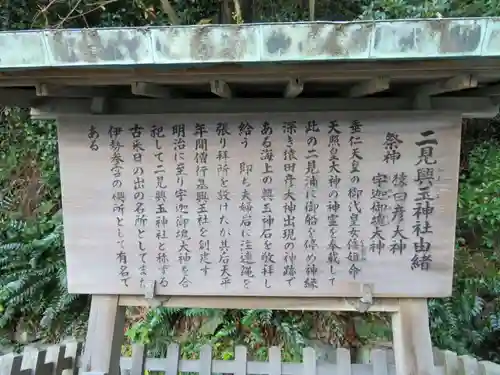 二見興玉神社由緒
祭神 猿田彦大神
宇迦御魂大神
垂仁天皇の御代皇女倭姫命
天照皇大神の神霊を奉戴して
此の二見浦に御船を停め神縁
深き猿田彦大神出現の神跡で
ある海上の興玉神石を敬拝し
給う 即ち夫婦岩に注連縄を
張り拝所を設けたが其后天平
年間僧行基興玉社を創建す
明治に至り宇迦御魂大神を合
祀して二見興玉神社と称する
古来日の出の名所として また
伊勢参宮の禊所として有名で
ある